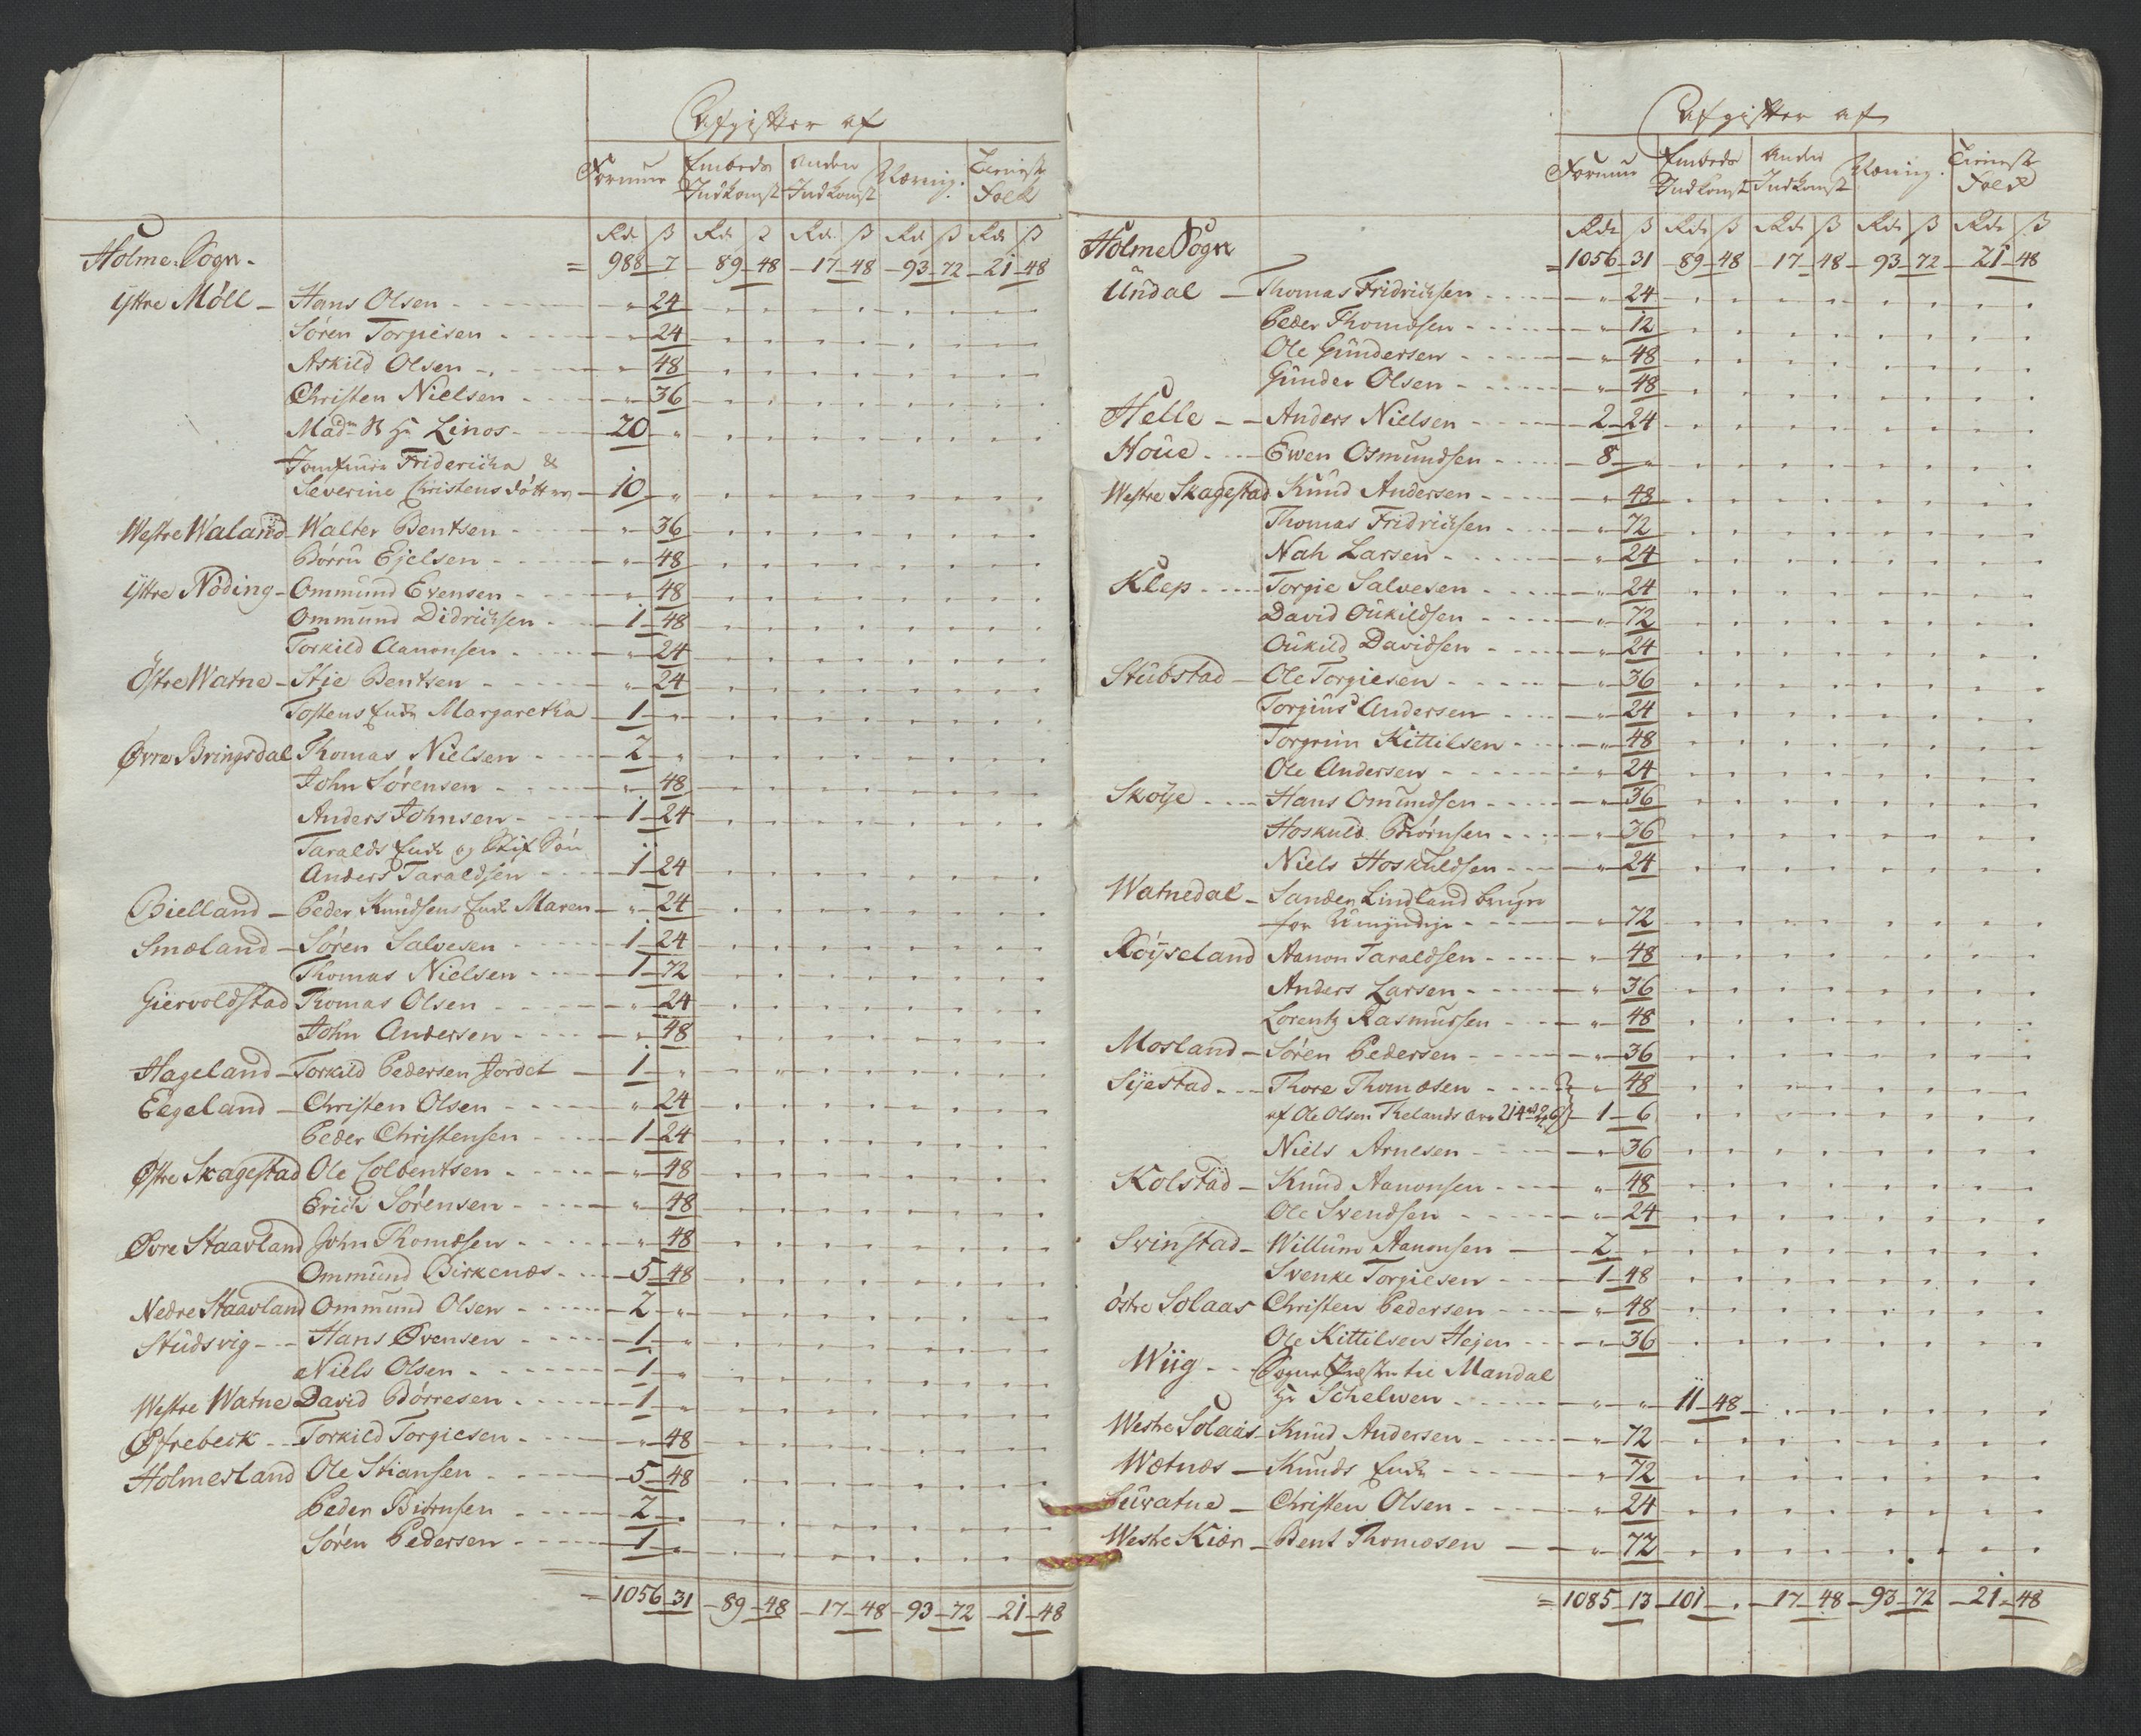 Afgifter af
Formue Embeds Indkomst Anden Indkomst Næring. Tieneste Folk
Rd ß Rd ß Rd ß Rd ß Rd ß
Holme Sogn - = 988 - 7 - 89 - 48 - 17 - 48 - 93 - 72 - 21 - 48
Ÿttre Möll - Hans Olsen - " 24
Sören Torgiesen - " 24
Askild Olsen - " 48
Christen Nielsen - " 36
Madm Linos - 20 - "
Jomfruer Fridericha &
Severine Christensdötter - 10 - "
Westre Waland - Walter Bentsen - " 36
Börru Ejelsen - " 48
Ÿttre Nöding - Ommund Evensen - " 48
Ommund Didrichsen - 1 - 48
Torkild Aanonsen - " 24
Östre Watne - Stie Bentsen - " 24
Tostens Enke Margaretha - 1 - "
Øvre Bringsdal Thomas Nielsen - 2 - "
John Sörensen - " 48
Anders Johnsen - 1 - 24
Taralds Enke og Stif Sön
Anders Taraldsen - 1 - 24
Bielland - Peder Knudsens Enke Maren - " 24
Smæland - Sören Salvesen - 1 - 24
Thomas Nielsen - 1 - 72
Giervoldstad Thomas Olsen - " 24
John Andersen - " 48
Hageland - Torkild Pedersen Jordet - 1 - "
Eegeland - Christen Olsen - " 24
Peder Christensen - 1 - 24
Østre Skagestad Ole Colbentsen - " 48
Erich Sörensen - " 48
Øvre Staavland John Thomesen - " 48
Ommund Birkenæs - 5 - 48
Nedre Staavland Ommund Olsen - 2 - "
Studsvig - Hans Øvensen - 1 - "
Niels Olsen - 1 - "
Westre Watne David Börresen - 1 - "
Øfrebeck - Torkild Torgiesen - " 48
Holmesland Ole Stiansen - 5 - 48
Peder Biörnsen - 2 - "
Sören Pedersen - 1 - "
= 1056 - 31 - 89 - 48 - 17 - 48 - 93 - 72 - 21 - 48
Afgifter af
Formue Embeds Indkomst Anden Indkomst Næring. Tieneste Folk
Rd ß Rd ß Rd ß Rd ß Rd ß
Holme Sogn = 1056 - 31 - 89 - 48 - 17 - 48 - 93 - 72 - 21 - 48
Undal - Thomas Fridrichsen - " 24
Peder Thomesen - " 12
Ole Gundersen - " 48
Gunder Olsen - " 48
Helle - Anders Nielsen - 2 - 24
Houe - Ewen Osmundsen - 8 - "
Westre Skagestad Knud Andersen - " 48
Thomas Fridrichsen - " 72
Nah Larsen - " 24
Klep - Torgie Salvesen - " 24
David Oukildsen - " 72
Oukild Davidsen - " 24
Stubstad - Ole Torgiesen - " 36
Torgius Andersen - " 24
Torgrim Kittilsen - " 48
Ole Andersen - " 24
Skoÿe - Hans Omundsen - " 36
Hoskuld Biörnsen - " 36
Niels Hoskuldsen - " 24
Watnedal - Sander Lindland bruger
for Umyndige - " 72
Röÿseland Aanon Taraldsen - " 48
Anders Larsen - " 36
Lorentz Rasmussen - " 48
Mosland - Sören Pedersen - " 36
Sÿestad - Thore Thomesen - " 48
af Ole Olsen Thelands Arv 214 rd 26 ß - 1 - 6
Niels Arnesen - " 36
Kolstad - Knud Aanonsen - " 48
Ole Svendsen - " 24
Svinstad - Willum Aanonsen - 2 - "
Svenke Torgiesen - 1 - 48
östre Solaas Christen Pedersen - " 48
Ole Kittilsen Hejen - " 36
Wiig - Sogne Præsten til Mandal
Hr Schelwen - " " 11 - 48
Westre Solaas - Knud Andersen - " 72
Wætnæs - Knuds Enke - " 72
Suvatne - Christen Olsen - " 24
Westre Kiær - Bent Thomesen - " 72
= 1085 - 13 - 101 - " - 17 - 48 - 93 - 72 - 21 - 48